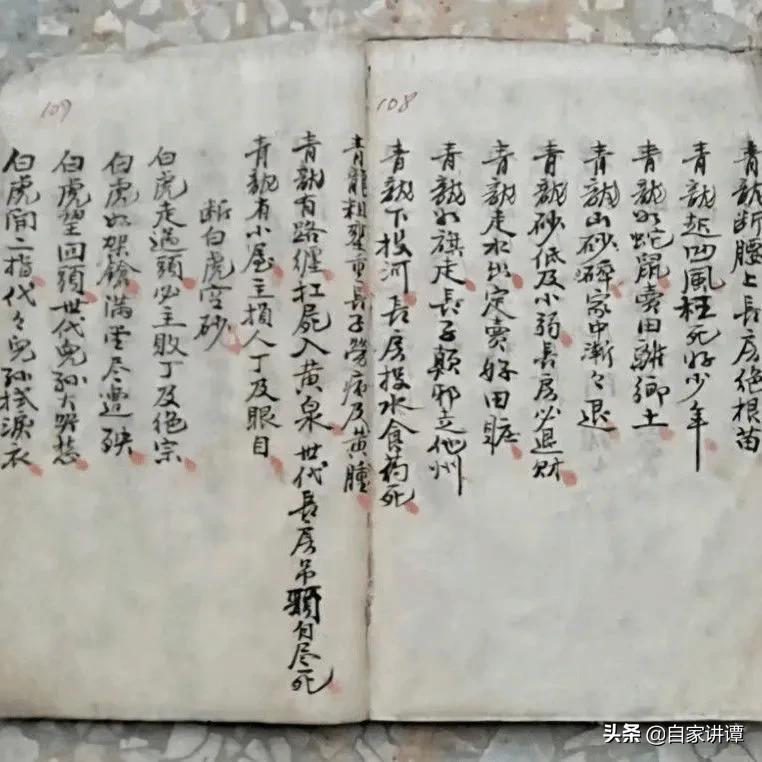 108
青龍断腰上長房绝根苗
青龍起凹風
死好少年
青龍如蛇鼠賣田離鄉土
青龍山砂碎家中漸々退
青龍砂低及小弱長房必退财
青龍走水
定賣好田
青龍如旗走長子顛邪立他州
青龍下投河長房投水食药死
109
青龍粗壅重長子勞病及黄腫
青龍有路纏扛屍入黄泉世代長房吊頸自尽死
青龍有小屋主損人丁及眼目
断白虎
砂
白虎走過頭必主敗丁及绝宗
白虎如架鎗满堂尽遭殃
白虎望回頭世代兒孙大
愁
白虎開二指代々兒孙拭淚衣
头条 @自家讲谭